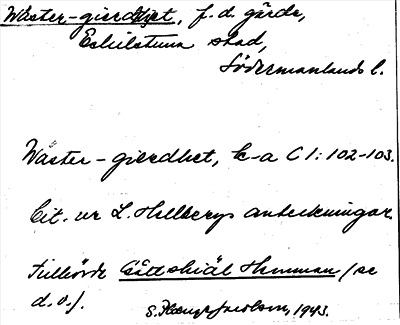 Wäster-gierdhet, f.d. gärde,
Eskilstuna stad,
Södermanlands l.
Wäster-gierdhet, k-a C I: 102-103.
Cit. ur L. Hellbergs anteckningar
Tillhörde Hemman /se
d.o./.
1943.